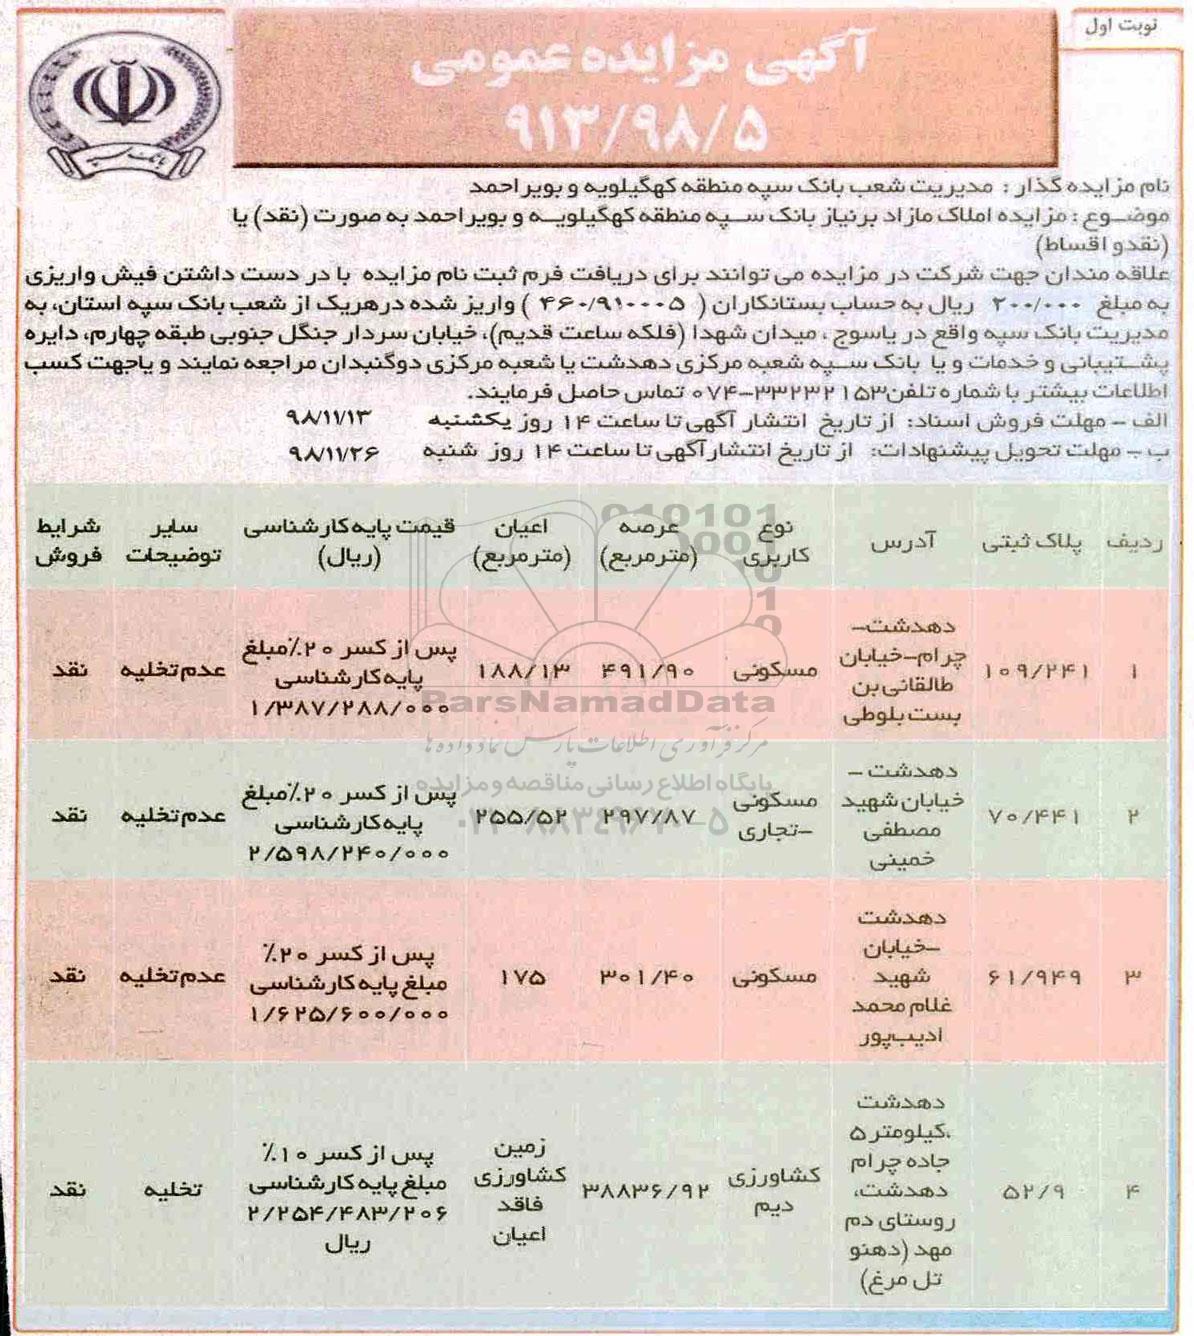 نوبت اول
آگهی مزایده عمومی
۹۱۳/۹۸/۵
بانک سپه
نام مزایده گذار : مدیریت شعب بانک سپه منطقه کهگیلویه و بویراحمد
موضوع : مزایده املاک مازاد برنیاز بانک سپه منطقه کهگیلویه و بویراحمد به صورت (نقد) یا
(نقدو اقساط)
علاقه مندان جهت شرکت در مزایده می توانند برای دریافت فرم ثبت نام مزایده با در دست داشتن فیش واریزی
به مبلغ ۲۰۰/۰۰۰ ریال به حساب بستانکاران ( ۴۶۰/۹۱۰۰۰۵ ) واریز شده درهریک از شعب بانک سپه استان، به
مدیریت بانک سپه واقع در یاسوج ، میدان شهدا (فلکه ساعت قدیم)، خیابان سردار جنگل جنوبی طبقه چهارم، دایره
پشتیبانی و خدمات و یا بانک سپه شعبه مرکزی دهدشت یا شعبه مرکزی دوگنبدان مراجعه نمایند و یاجهت کسب
اطلاعات بیشتر با شماره تلفن۳۳۲۳۲۱۵۳-۰۷۴ تماس حاصل فرمایند.
الف - مهلت فروش اسناد: از تاریخ انتشار آگهی تا ساعت ۱۴ روز یکشنبه ۹۸/۱۱/۱۳
ب - مهلت تحویل پیشنهادات: از تاریخ انتشارآگهی تا ساعت ۱۴ روز شنبه ۹۸/۱۱/۲۶
ردیف پلاک ثبتی آدرس نوع کاربری عرصه (مترمربع) اعیان (مترمربع) قیمت پایه کارشناسی (ریال) سایر توضیحات شرایط فروش
۱ ۱۰۹/۲۴۱ دهدشت- چرام-خیابان طالقانی بن بست بلوطی مسکونی ۴۹۱/۹۰ ۱۸۸/۱۳ پس از کسر ۲۰٪مبلغ پایه کارشناسی ۱/۳۸۷/۲۸۸/۰۰۰ عدم تخلیه نقد
۲ ۷۰/۴۴۱ دهدشت - خیابان شهید مصطفی خمینی مسکونی -تجاری ۲۹۷/۸۷ ۲۵۵/۵۲ پس از کسر ۲۰٪مبلغ پایه کارشناسی ۲/۵۹۸/۲۴۰/۰۰۰ عدم تخلیه نقد
۳ ۶۱/۹۴۹ دهدشت -خیابان شهید غلام محمد ادیب‌پور مسکونی ۳۰۱/۴۰ ۱۷۵ پس از کسر ۲۰٪ مبلغ پایه کارشناسی ۱/۶۲۵/۶۰۰/۰۰۰ عدم تخلیه نقد
۴ ۵۲/۹ دهدشت ،کیلومتر۵ جاده چرام دهدشت، روستای دم مهد (دهنو تل مرغ) کشاورزی دیم ۳۸۸۳۶/۹۲ زمین کشاورزی فاقد اعیان پس از کسر ۱۰٪ مبلغ پایه کارشناسی ۲/۲۵۴/۴۸۳/۲۰۶ ریال تخلیه نقد
ParsNamadData
مرکز فرآوری اطلاعات پارس نماد داده ها
پایگاه اطلاع رسانی مناقصه و مزایده
۰۲۱-۸۸۳۴۹۶۷۰-۵